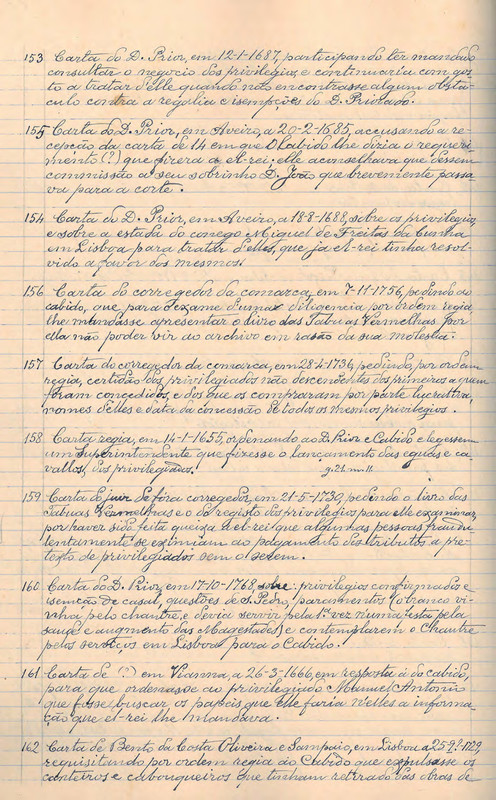 153 Carta do D. Prior, em 12-1-1687, participando ter mandado
consultar o negocio dos privilegios, e continuaria com gos
to a tratar d'elle quando não encontrasse algum obsta
culo contra a regalia e isempções do D. Priorado.
155 Carta do D. Prior, em Aveiro, a 20-2-1685, accusando a re-
cepção da carta de 14 em que o Cabido lhe dizia o requeri
mento (?) que fizera a el-rei; elle aconselhava que dessem
commissão a seu sobrinho D. João que brevemente passa
va para a corte.
154 Carta do D. Prior, em Aveiro, a 18-8-1688, sobre os privilegios,
e sobre a estada do conego Miguel de Freitas da Cunha
em Lisboa para tratar d'elles, que já el-rei tinha resol-
vido a favor dos mesmos.
156 Carta do corregedor da comarca, em 7-11-1756, pedindo ao
cabido, que para exame d'uma diligencia por ordem regia,
lhe mandasse apresentar o livro das Tabuas Vermelhas por
ella não poder vir ao archivo em rasão da sua molestia.
157 Carta do corregedor da comarca, em 28-4-1736, pedindo, por ordem
regia, certidão dos privilegiados não descendentes dos primeiros a quem
foram concedidos, e dos que os compraram por parte lucrativa,
nomes d'elles e data da concessão de todos os mesmos privilegios.
158 Carta regia, em 14-1-1655, ordenando ao D. Prior e Cabido elegessem
um superintendente que fizesse o lançamento das eguas e ca-
vallos, dos privilegiados.
159 Carta do juiz de fóra corregedor, em 21-5-1730, pedindo o livro das
Tabuas Vermelhas e o do registo dos privilegios para elle examinar,
por haver sido feita queixa a el-rei que algumas pessoas fraudu
lentamente se eximiam ao pagamento dos tributos a pre-
texto de privilegiados sem o serem.
160 Carta do D. Prior, em 17-10-1768, sobre: privilegios confirmados e
isenção de casal, questões de S. Pedro, paramentos (o branco vi-
nha pelo chantre, e devia servir pela 1ª vez n'uma festa pela
saude e augmento das Magestades) e contemplarem o Chantre
pelos serviços em Lisboa para o Cabido.
161 Carta de (?) em Vianna, a 26-3-1666, em resposta á do cabido,
para que ordenasse ao privilegiado Manuel Antonio
que fosse buscar os papeis que elle faria n'elles a informa-
ção que el-rei lhe mandava.
162 Carta de Bento da Costa Oliveira e Sampaio, em Lisboa a 25-9-1729,
requisitando por ordem regia ao Cabido que expulsasse os
canteiros e cabouqueiros que tinham retirado das obras de